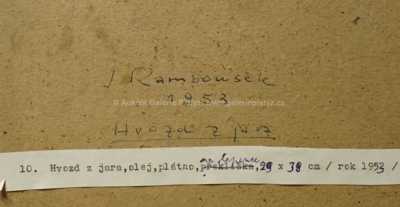 J Rambousek
1953
© Aukční Galerie Platýz
Hvozd z jara
nalepené
10. Hvozd z jara,olej,plátno,překližka,29 x 38 cm / rok 1953 /